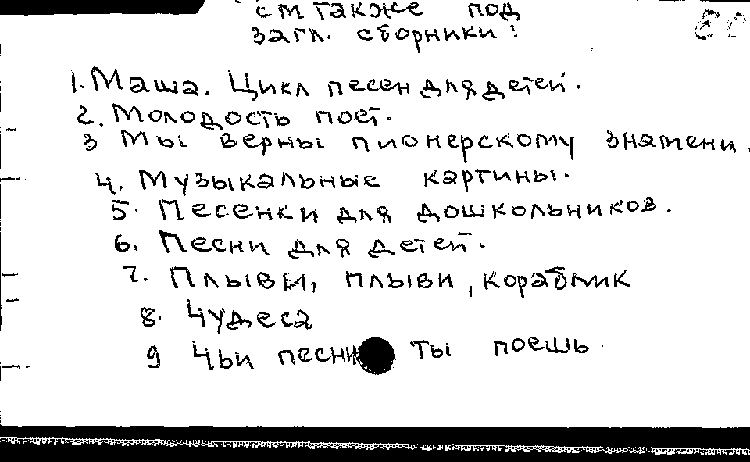 см также под
загл. сборники:
1. Маша. Цикл песен для детей.
2. Молодость поет.
3 Мы верны пионерскому знамени.
4. Музыкальные картины.
5. Песенки для дошкольников.
6. Песни для детей.
7. Плыви, плыви, кораблик
8. Чудеса
9 Чьи песни ты поешь